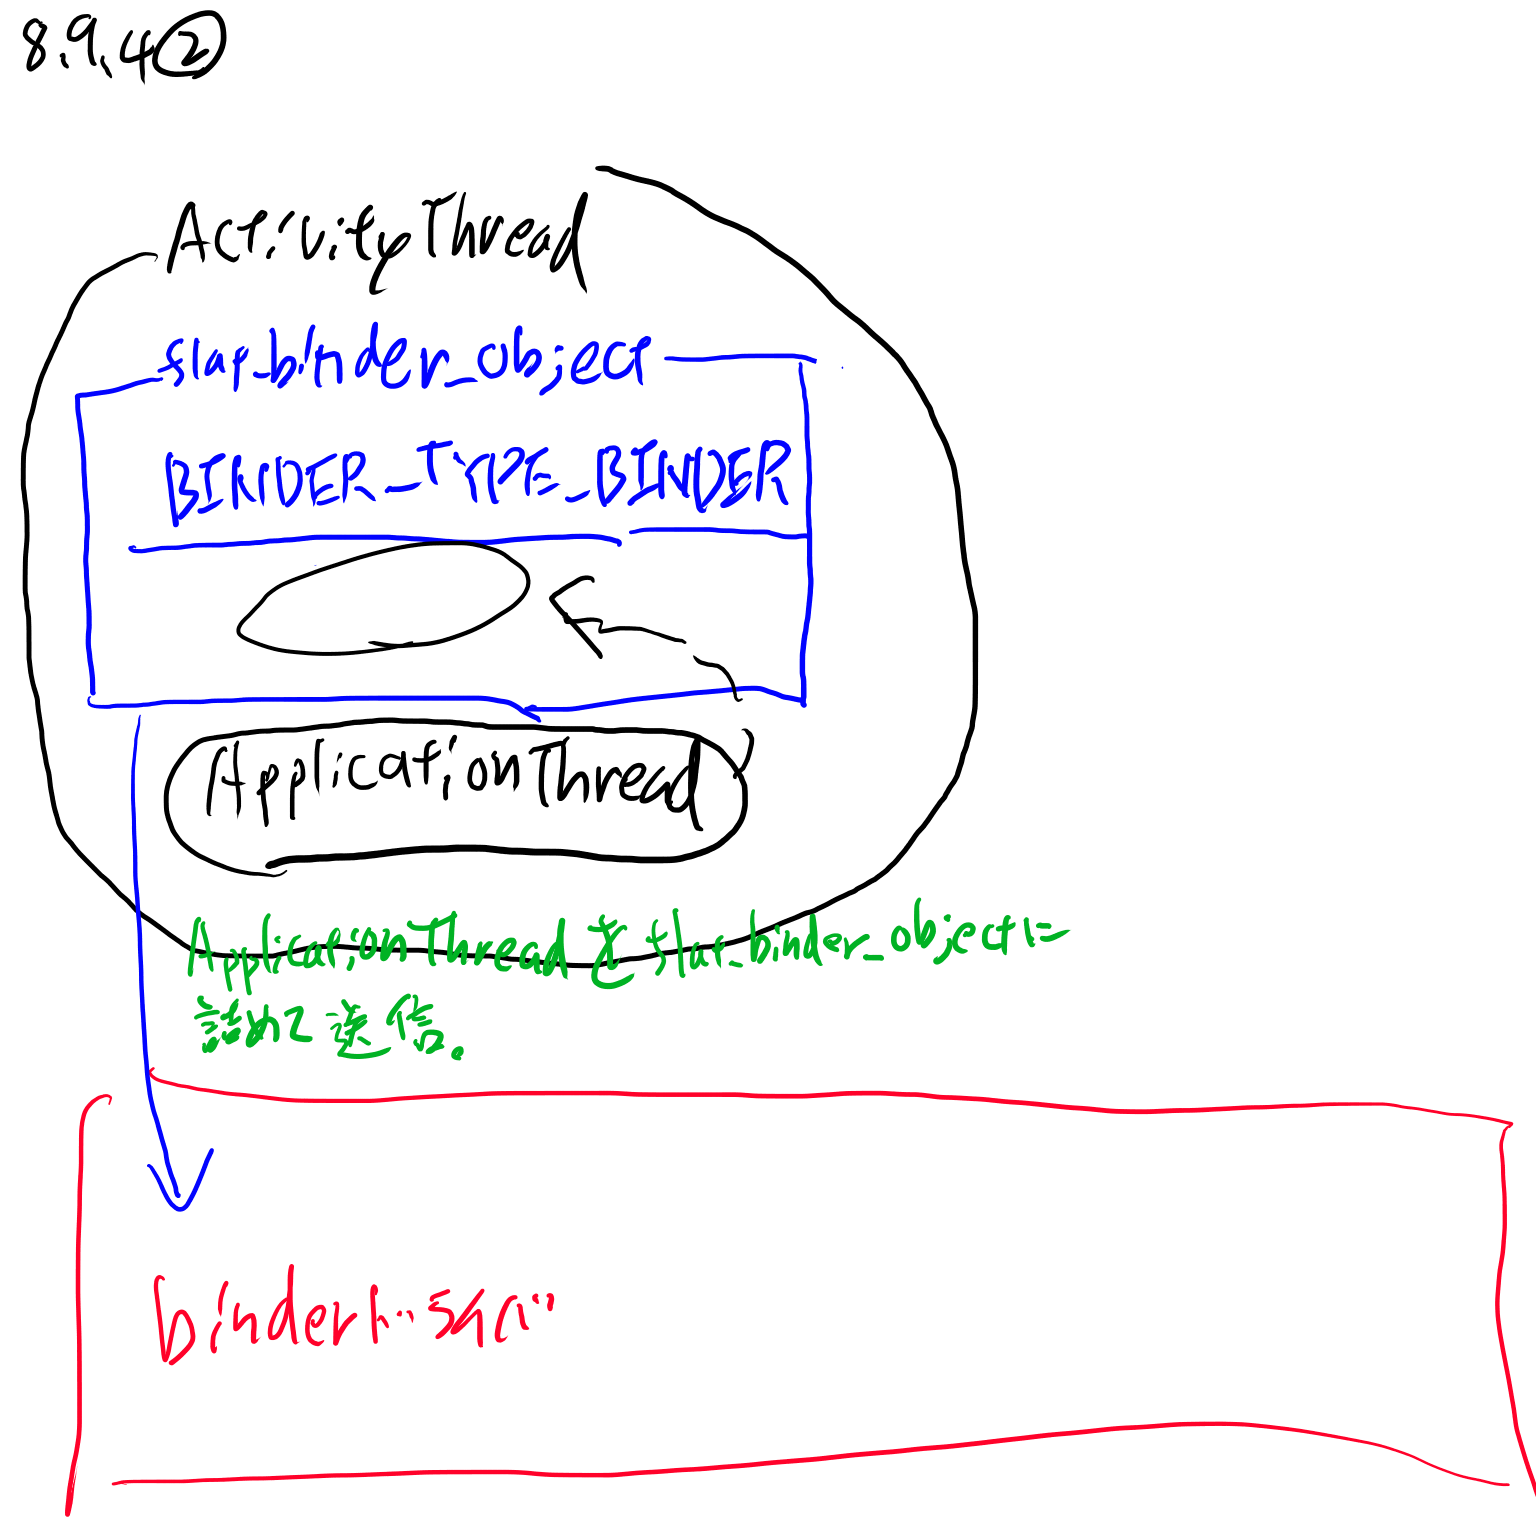 8.9.4②
ActivityThread
flat_binder_object
BINDER_TYPE_BINDER
ApplicationThread
ApplicationThreadをflat_binder_objectに
詰めて送信。
binderドライバ